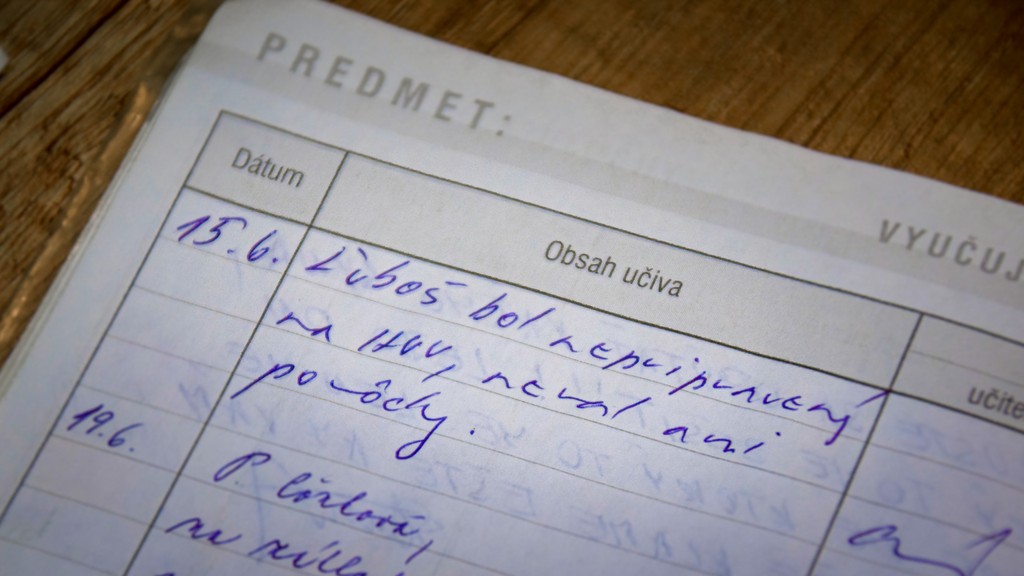 PREDMET:
VYUČUJ
Dátum
Obsah učiva
učite
15.6. Ľuboš bol nepripravený
na HVV, nemal ani
pomôcky.
19.6.
P.
na